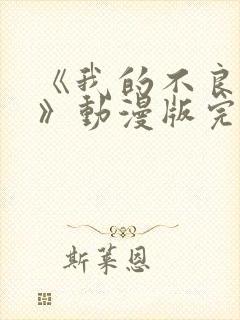 《我的不良
》動漫版完
斯萊恩